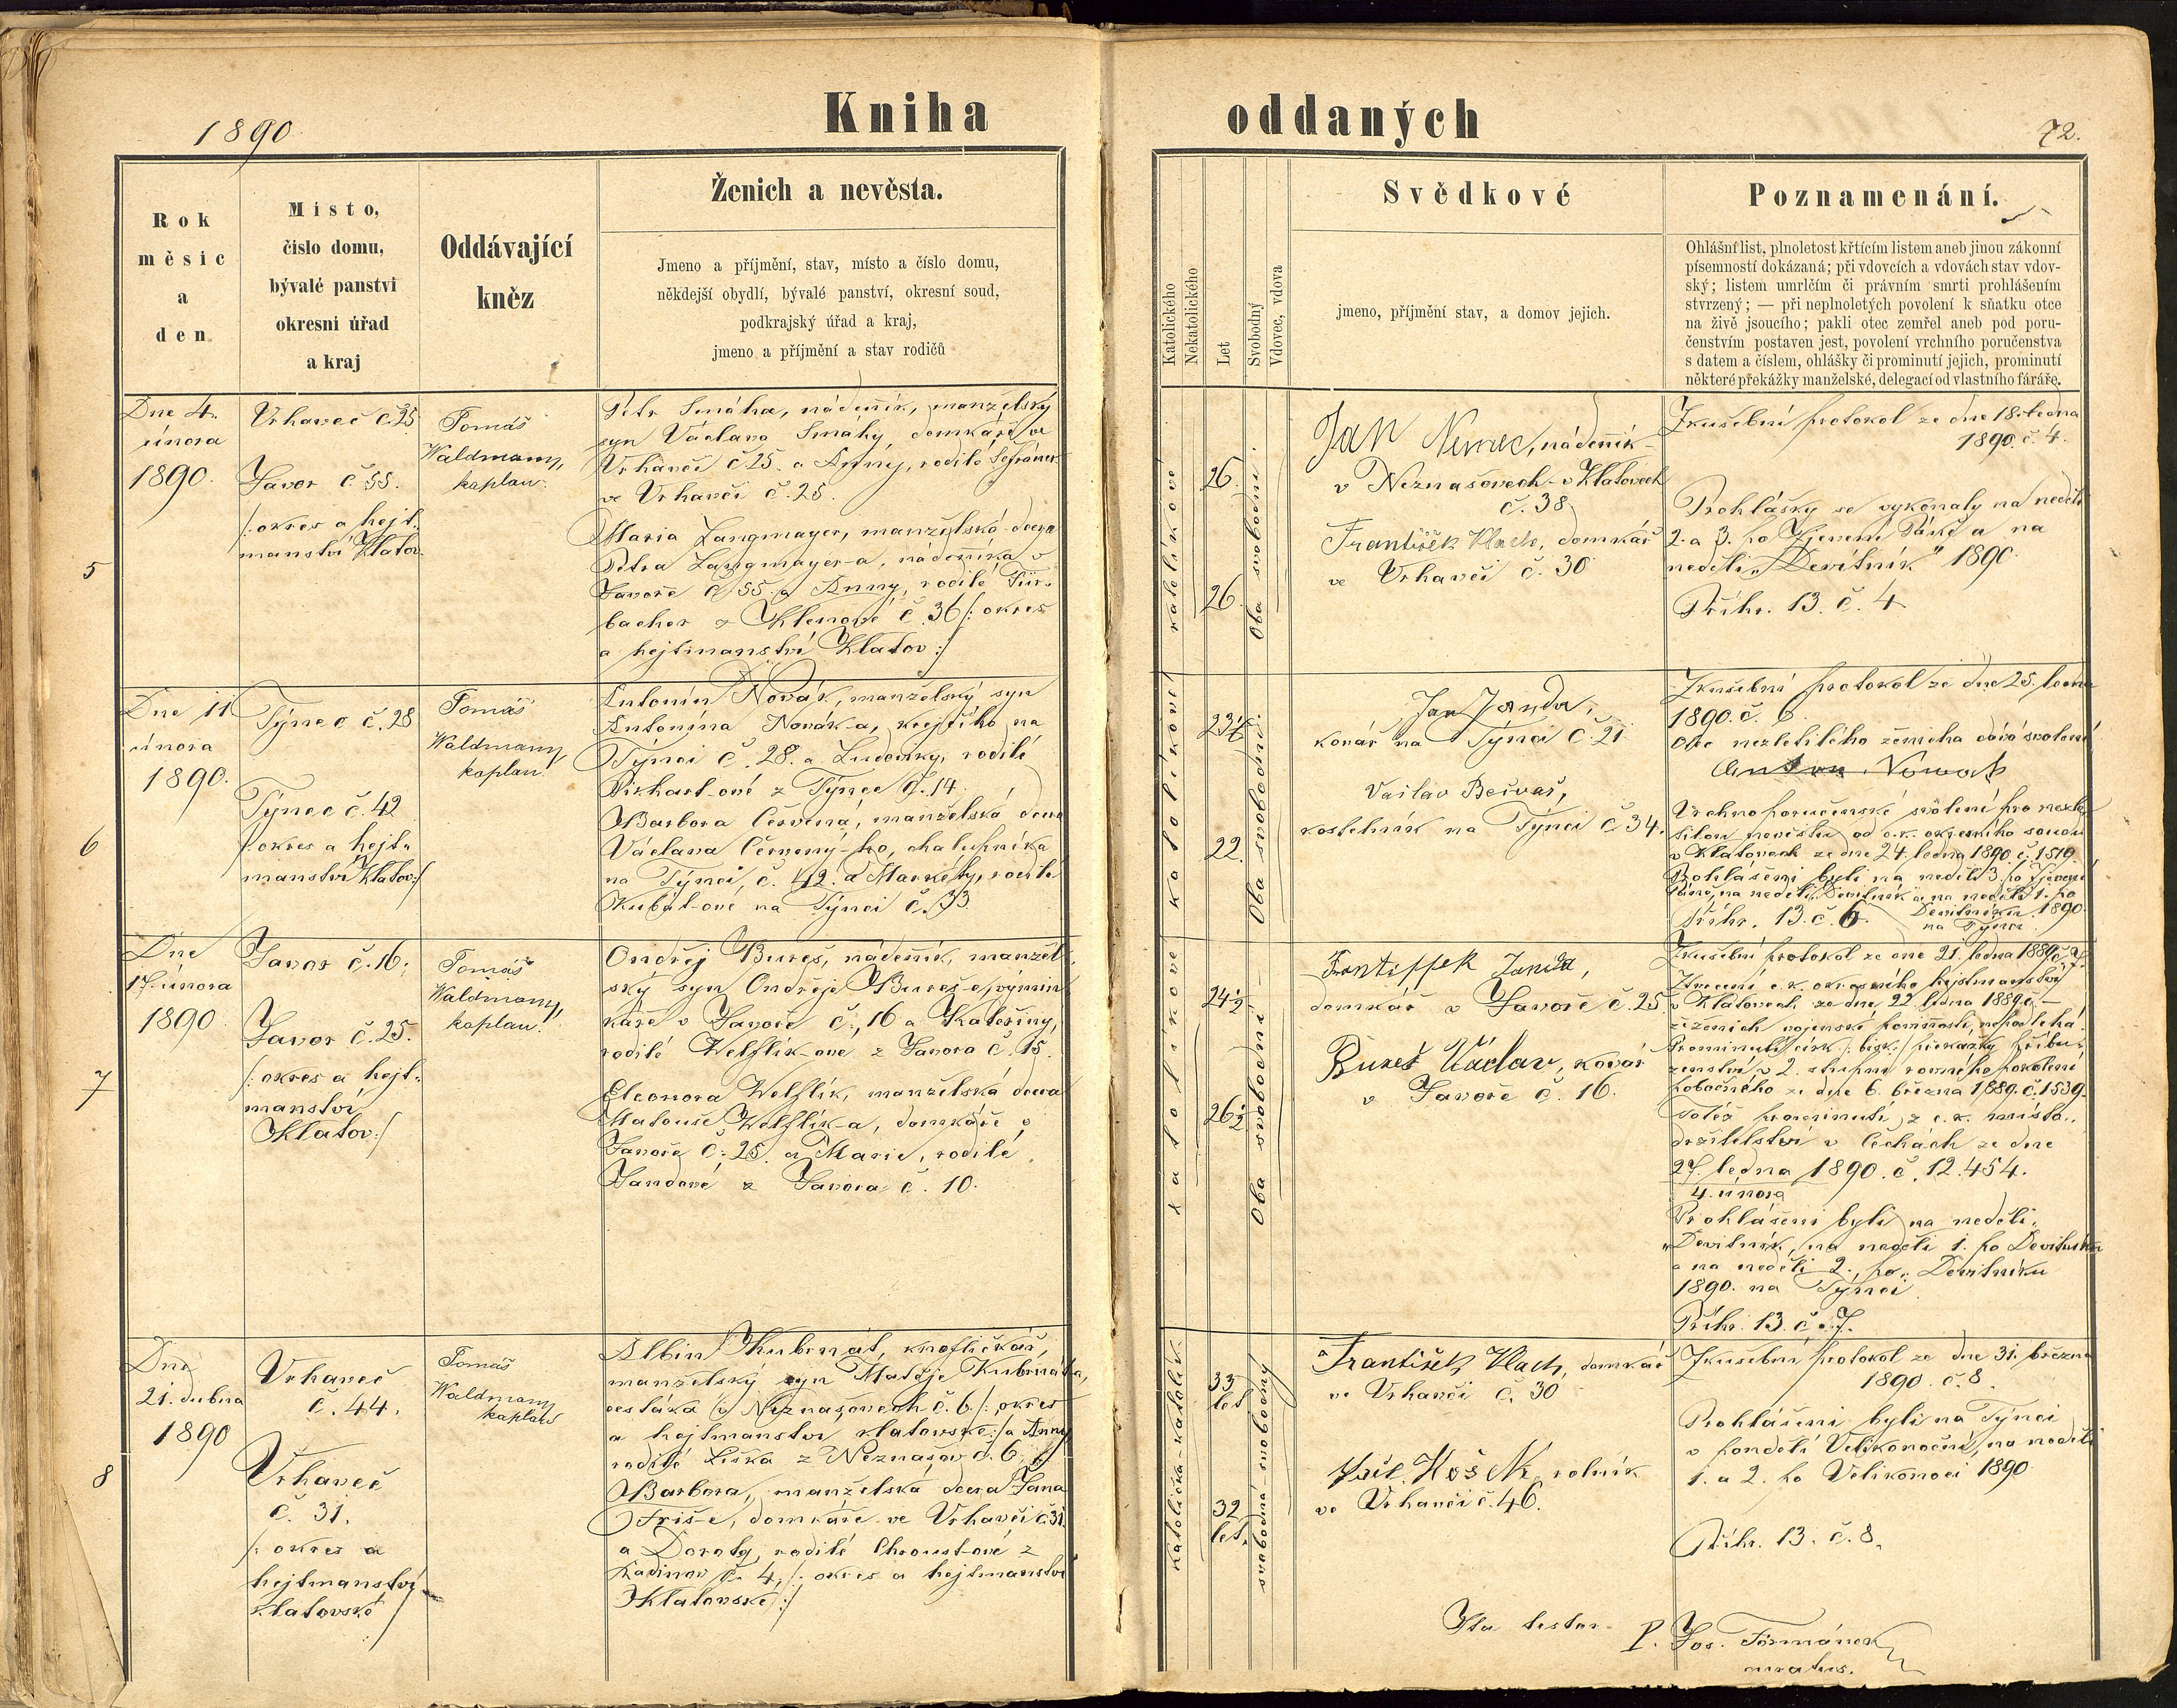 1890
Kniha oddaných
72.
Rok
měsic
a
den
Misto,
čislo domu,
bývalé panstvi
okresni úřad
a kraj
Oddávající
kněz
Ženich a nevěsta.
Jmeno a příjmění, stav, místo a číslo domu,
někdejší obydlí, bývalé panství, okresní soud,
podkrajský úřad a kraj,
jmeno a příjmění a stav rodičů
Katolického
Nekatolického
Let
Svobodný
Vdovec, vdova
Svědkové
jmeno, příjmění stav, a domov jejich.
Poznamenání.
Ohlášní list, plnoletost křtícím listem aneb jinou zákonní
písemností dokázaná; při vdovcích a vdovách stav vdov-
ský; listem umrlčím či právním smrti prohlášením
stvrzený; — při neplnoletých povolení k sňatku otce
na živě jsoucího; pakli otec zemřel aneb pod poru-
čenstvím postaven jest, povolení vrchního poručenstva
s datem a číslem, ohlášky či prominutí jejich, prominutí
některé překážky manželské, delegací od vlastního fáráře.
5
Dne 4.
února
1890.
Vrhaveč č. 25
Javor č. 55.
/: okres a hejt-
manství Klatov
Tomáš
Waldmann,
kaplan.
Petr Smáha, nádeník, manželský
syn Václava Smáhy, domkáře ve
Vrhavči č. 25. a Anny, rodilé
ve Vrhavči č. 25.
Maria Langmayer, manželská dcera
Petra Langmayer-a, nádeníka v
Javoře č. 55. a Anny, rodilé Für-
bacher z Klenové č. 36 /: okres
a hejtmanství Klatov :/
katolíkové
26.
26.
Oba svobodni.
Jan Nemec, nádeník
v Neznašovech - v Klatovech
č. 38
František Vlach, domkář
ve Vrhavči č. 30
Zkušební protokol ze dne 18. ledna
1890. č. 4.
Prohlášky se vykonaly na neděli
2. a 3. po Zjevení Páně a na
neděli „Devítník" 1890.
Příhr. 13. č. 4
6
Dne 11
února
1890.
Týnec č. 28
Týnec č. 42
/: okres a hejt-
manství Klatov :/
Tomáš
Waldmann,
kaplan.
Antonín Novák, manželský syn
Antonína Novák-a, krejčího na
Týnci č. 28. a Ludoviky, rodilé
z Týnce č. 14.
Barbora Červená, manželská dcera
Václava Červený-ho, chalupníka
na Týnci, č. 42. a Markéty, rodilé
Kubát-ové na Týnci č. 33
katolíkové
22.
Oba svobodni.
Jan Janda,
kovář na Týnci č. 21
Vaclav Bečvař,
kostelník na Týnci č 34.
Zkušební protokol ze dne 25. ledna
1890. č. 6.
Otec nezletilého ženicha dává svolení
Anton Nowak
Vrchnoporučenské svolení pro nezle-
tilou nevěstu od c. k. okresního soudu
v Klatovech ze dne 24. ledna 1890. č. 1519.
Prohlášeni byli na neděli 3. po Zjevení
Páně, na neděli „Devítník a na neděli 1. po
Devítníku 1890
na Týnci
Příhr. 13. č. 6.
7
Dne
17. února
1890
Javor č. 16.
Javor č. 25.
/: okres a hejt-
manství
Klatov :/
Tomáš
Waldmann,
kaplan.
Ondřej Bureš, nádeník, manžel-
ský syn Ondřeje Bureš-e, výmin-
káře v Javoře č. 16 a Kateřiny,
rodilé Welflík-ové z Javora č. 15.
Eleonora Welflík, manželská dcera
Matouše Welflík-a, domkáře v
Javoře č. 25. a Marie, rodilé
Jandové z Javora č. 10.
katolíkové
24½
26½
Oba svobodni
Frantissek Janda,
domkář v Javoře č. 25
Bureš Václav, kovář
v Javoře č. 16.
Zkušební protokol ze dne 21. ledna 1889. č. 7.
c. k. okresního hejtmanství
v Klatovech ze dne 22. ledna 1889. č. —
že ženich vojenské povinnosti nepodléhá.
Prominutí círk. /: bisk. :/ překážky příbu-
zenství v 2. stupni rovného pokolení
pobočného ze dne 6. března 1889. č. 1539.
Totéž prominutí z c. k. místo-
držitelství v Čechách ze dne
27. ledna 1890. č. 12.454.
4. února
Prohlášeni byli na neděli,
„Devítník, na neděli 1. po Devítníku
a na neděli 2. po „Devítníku
1890. na Týnci
Příhr. 13. č. 7.
8
Dne
21. dubna
1890
Vrhaveč
č. 44.
Vrhaveč
č. 31.
/: okres a
hejtmanství
klatovské :/
Tomáš
Waldmann
kaplan
Albin Kubrnát, knoflíčkář,
manželský syn Matěje Kubrnáta,
cestáka v Neznašovech č. 6. /: okres
a hejtmanství klatovské :/ a Anny
rodilé Liška z Neznašov č. 6.
Barbora, manželská dcera Jana
Friš-e, domkáře ve Vrhavči č. 31.
a Doroty, rodilé Chroust-ové z
Radinov č. 4, /: okres a hejtmanství
Klatovské :/
katolička katolík.
33
let
32
let.
svobodná svobodný
František Vlach, domkář
ve Vrhavči č. 30
rolník
ve Vrhavči č. 46.
Zkušební protokol ze dne 31. března
1890. č. 8.
Prohlášeni byli na Týnci
v pondělí Velikonoční, na neděli
1. a 2. po Velikonoci 1890.
Příhr. 13. č. 8.
Ita testor P. Jos. Formánek
curatus.